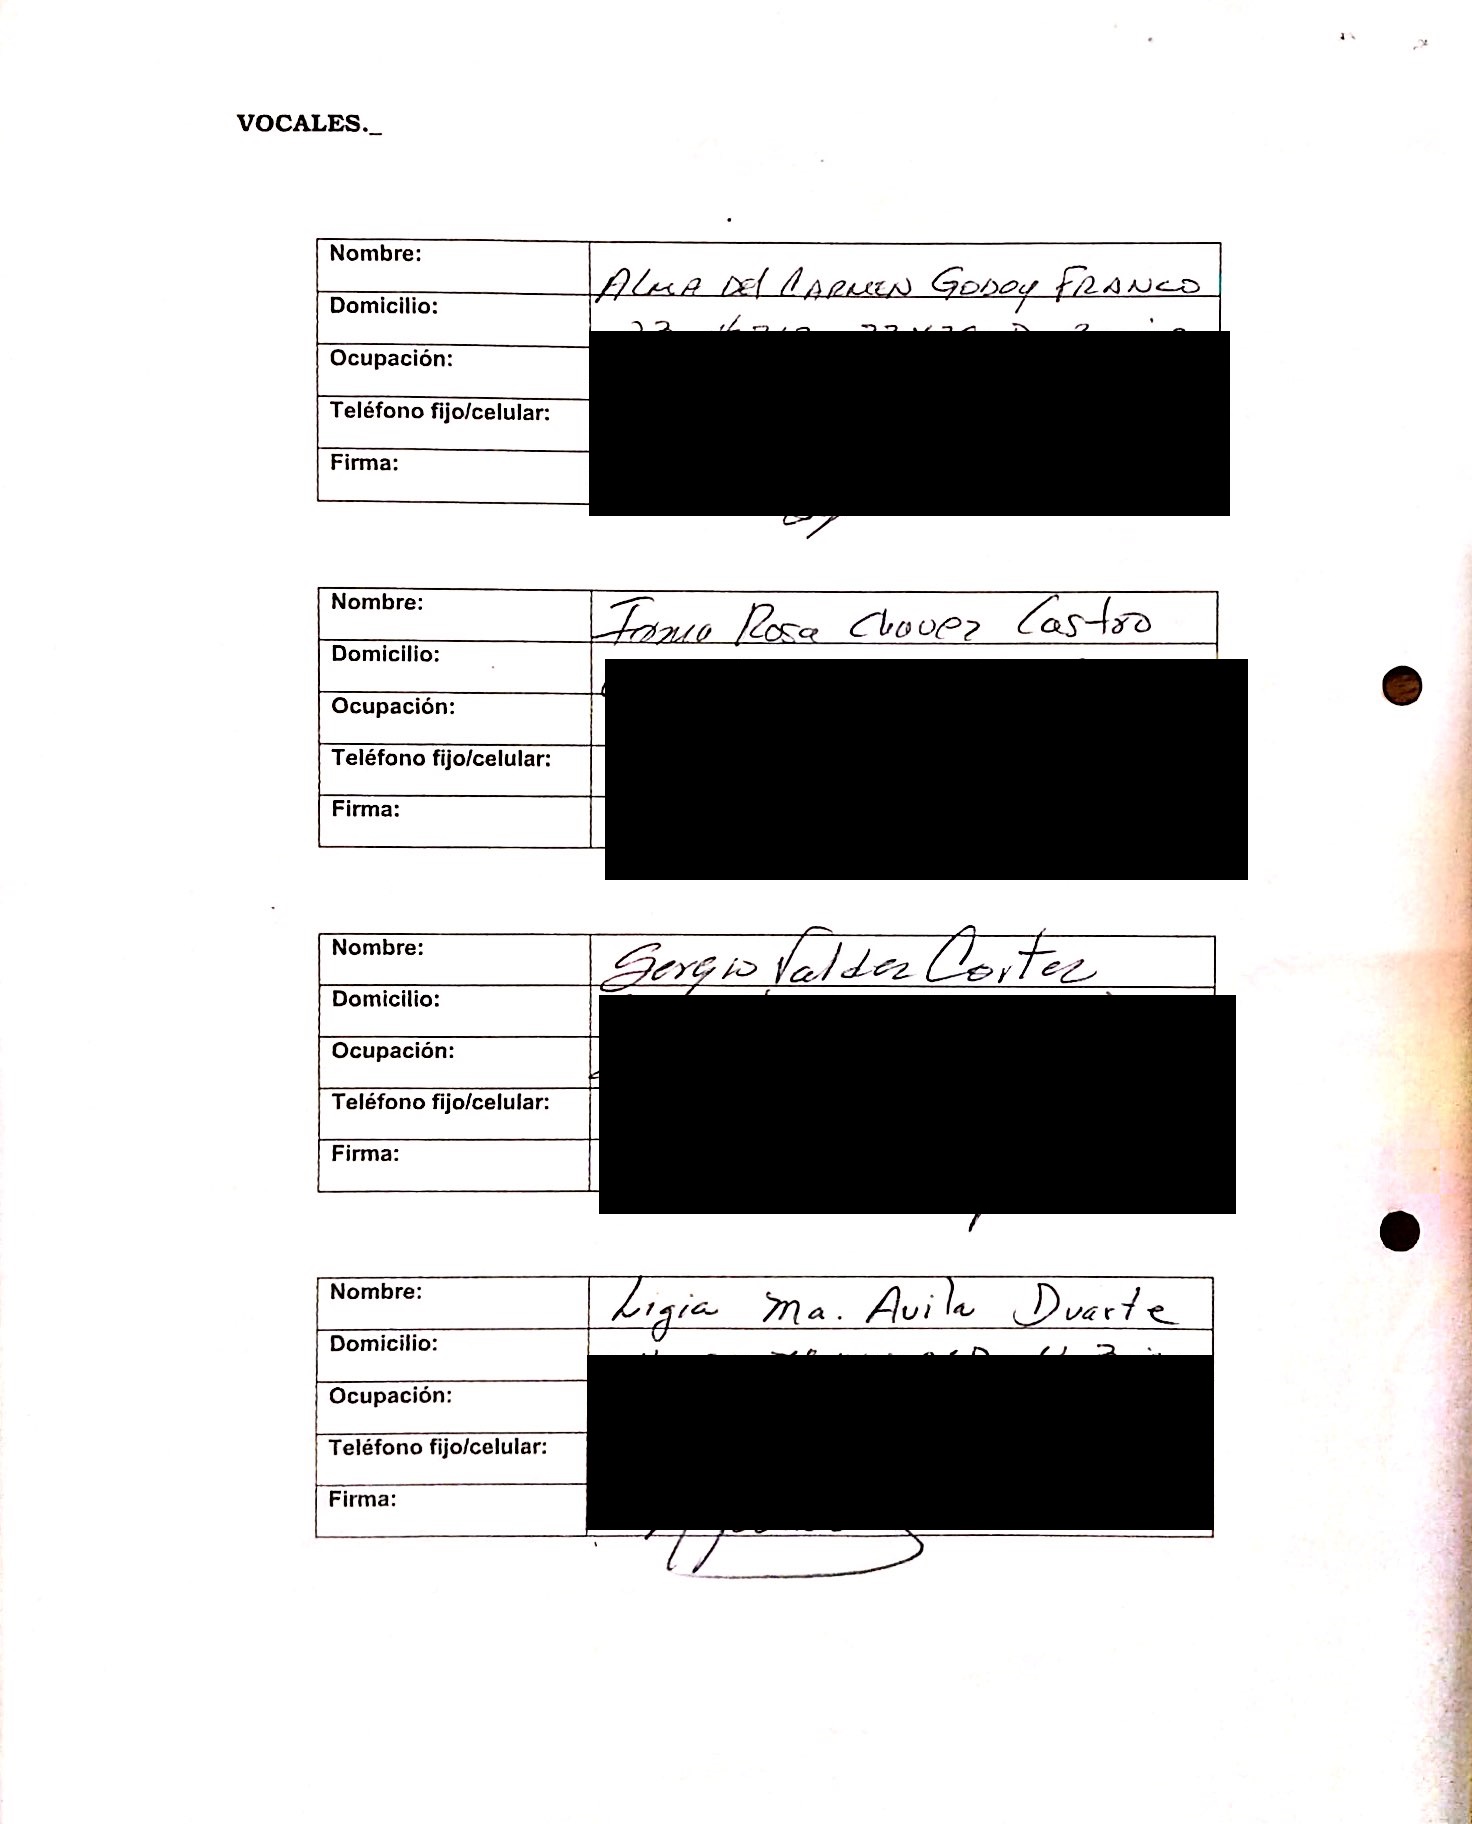 VOCALES._
Nombre: ALMA DEL CARMEN GODOY FRANCO
Domicilio:
Ocupación:
Teléfono fijo/celular:
Firma:
Nombre: Rosa Chavez Castro
Domicilio:
Ocupación:
Teléfono fijo/celular:
Firma:
Nombre: Sergio Valdez Cortez
Domicilio:
Ocupación:
Teléfono fijo/celular:
Firma:
Nombre: Ligia Ma. Avila Duarte
Domicilio:
Ocupación:
Teléfono fijo/celular:
Firma: